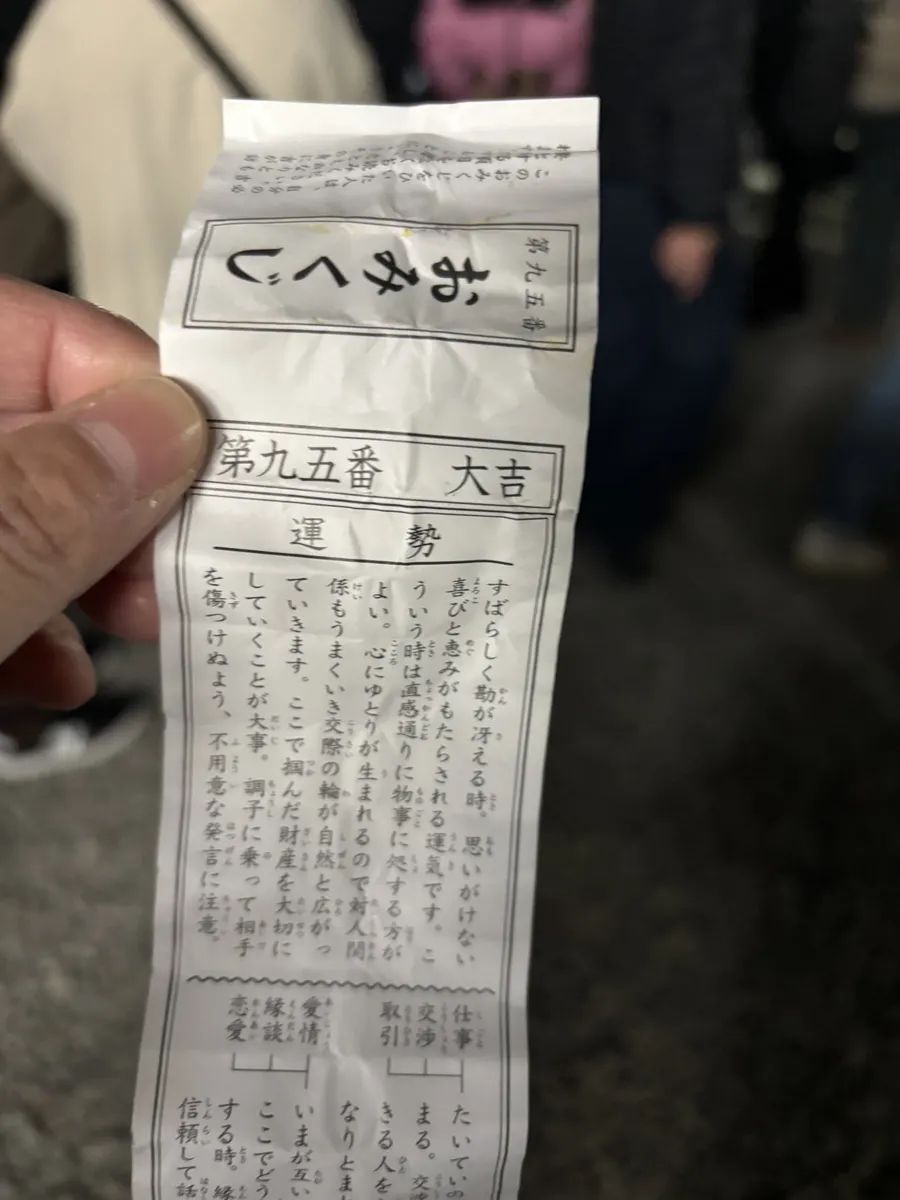 おみくじ
第九五番
第九五番 大吉
運勢
すばらしく勘が冴える時。思いがけない
喜びと恵みがもたらされる運気です。こ
ういう時は直感通りに物事に処する方が
よい。心にゆとりが生まれるので対人関
係もうまくいき交際の輪が自然と広がっ
ていきます。ここで掴んだ財産を大切に
していくことが大事。調子に乗って相手
を傷つけぬよう、不用意な発言に注意。
仕事
交渉
取引
たいていの
まる。交渉
きる人を
なりとま
愛情
縁談
恋愛
いまが互い
ここでどう
する時。縁
信頼して話